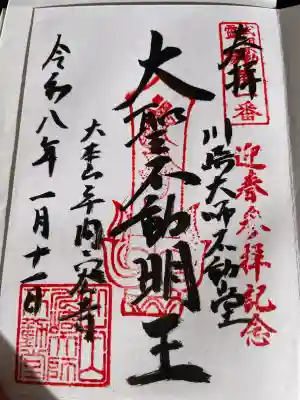 奉拝
番
迎春参拝記念
川崎大師不動堂
大聖不動明王
大本山平間寺
令和八年一月十一日